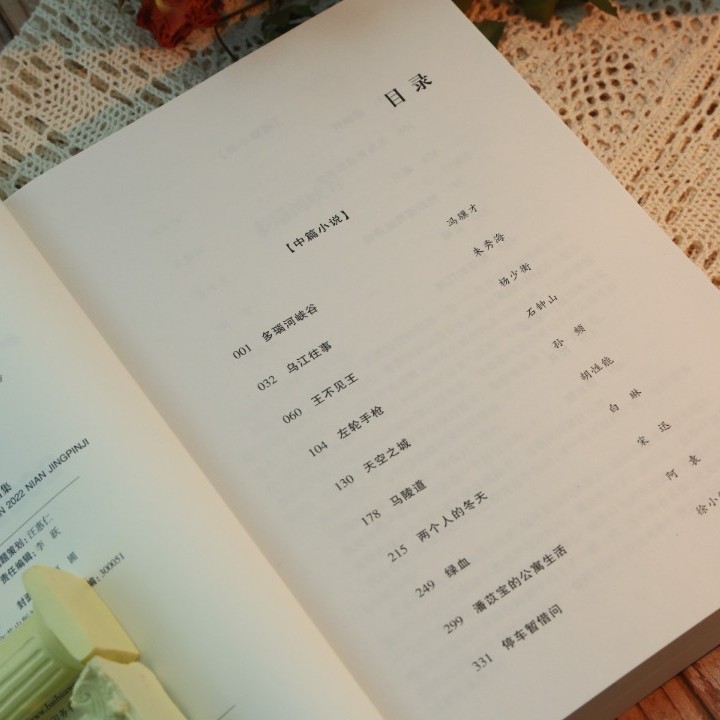 目 录
【中篇小说】
001 多瑙河峡谷 冯骥才
032 乌江往事 朱秀海
060 王不见王 杨少衡
104 左轮手枪 石钟山
130 天空之城 孙 频
178 马陵道 胡性能
215 两个人的冬天 白 琳
249 绿血 宋
299 潘苡宝的公寓生活 阿 袁
331 停车暂借问 徐小
集
2022 NIAN JINGPINJI
题策划：汪惠仁
责任编辑：李 跃
编：300051